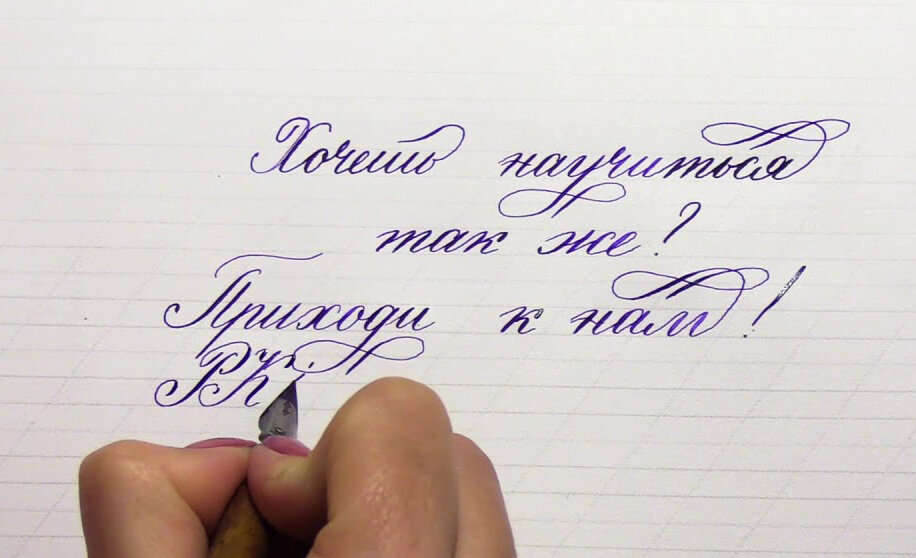 Хочешь научиться
так же?
Приходи к нам!
РК